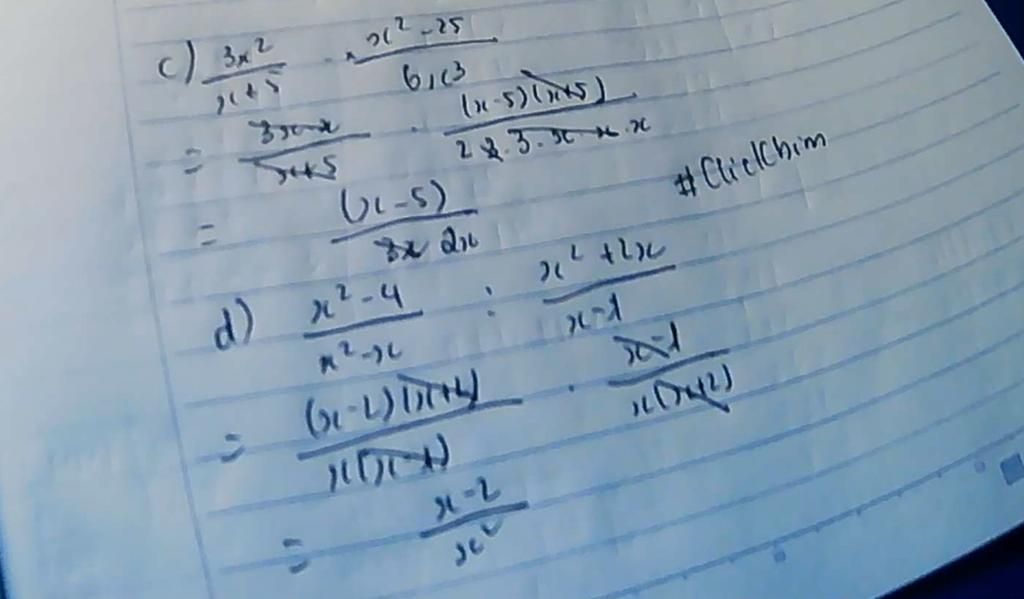 c) 3x² / x+5 · x²-25 / 6x³
= 3x·x / x+5 · (x-5)(x+5) / 2.3.x.x.x
= (x-5) / 2x
#ClickChim
d) x²-4 / x²-x : x²+2x / x-1
= (x-2)(x+2) / x(x-1) · x-1 / x(x+2)
= x-2 / x²